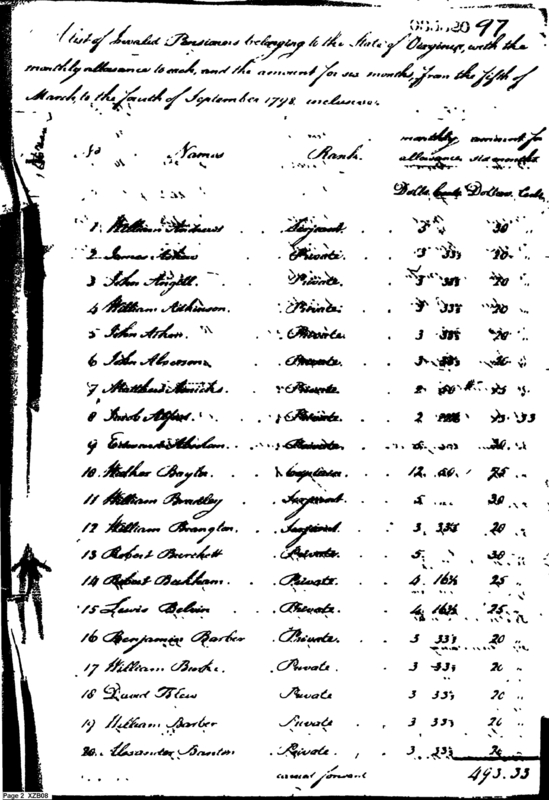 97
A list of Invalid Pensioners belonging to the State of Virginia, with the
monthly allowance to each, and the amount for six months, from the fifth of
March, to the fourth of September 1798 inclusive.
monthly amount for
No Names Rank. allowance six months
Dolls. Cents Dollars. Cents
1 William Andrews Serjeant 5 30
2 James Private 3 33⅓ 20
3 John Angell Private 3 33⅓ 20
4 William Atkinson Private 3 33⅓ 20
5 John Asher Private 3 33⅓ 20
6 John Alverson Private 3 33⅓ 20
7 Matthew Private 2 50 15
8 Jacob Private 2 15 33
9 Edward Abraham Private 5 30
10 Walker Baylor Captain 12 50 75
11 William Bradley Serjeant 5 30
12 William Brangton Serjeant 3 33⅓ 20
13 Robert Burchett Private 5 30
14 Robert Beckham Private 4 16⅔ 25
15 Lewis Belvin Private 4 16⅔ 25
16 Benjamin Barber Private 3 33⅓ 20
17 William Burke Private 3 33⅓ 20
18 David Private 3 33⅓ 20
19 William Barber Private 3 33⅓ 20
20 Alexander Banton Private 3 33⅓ 20
carried forward 493.33
Page 2 XZB08